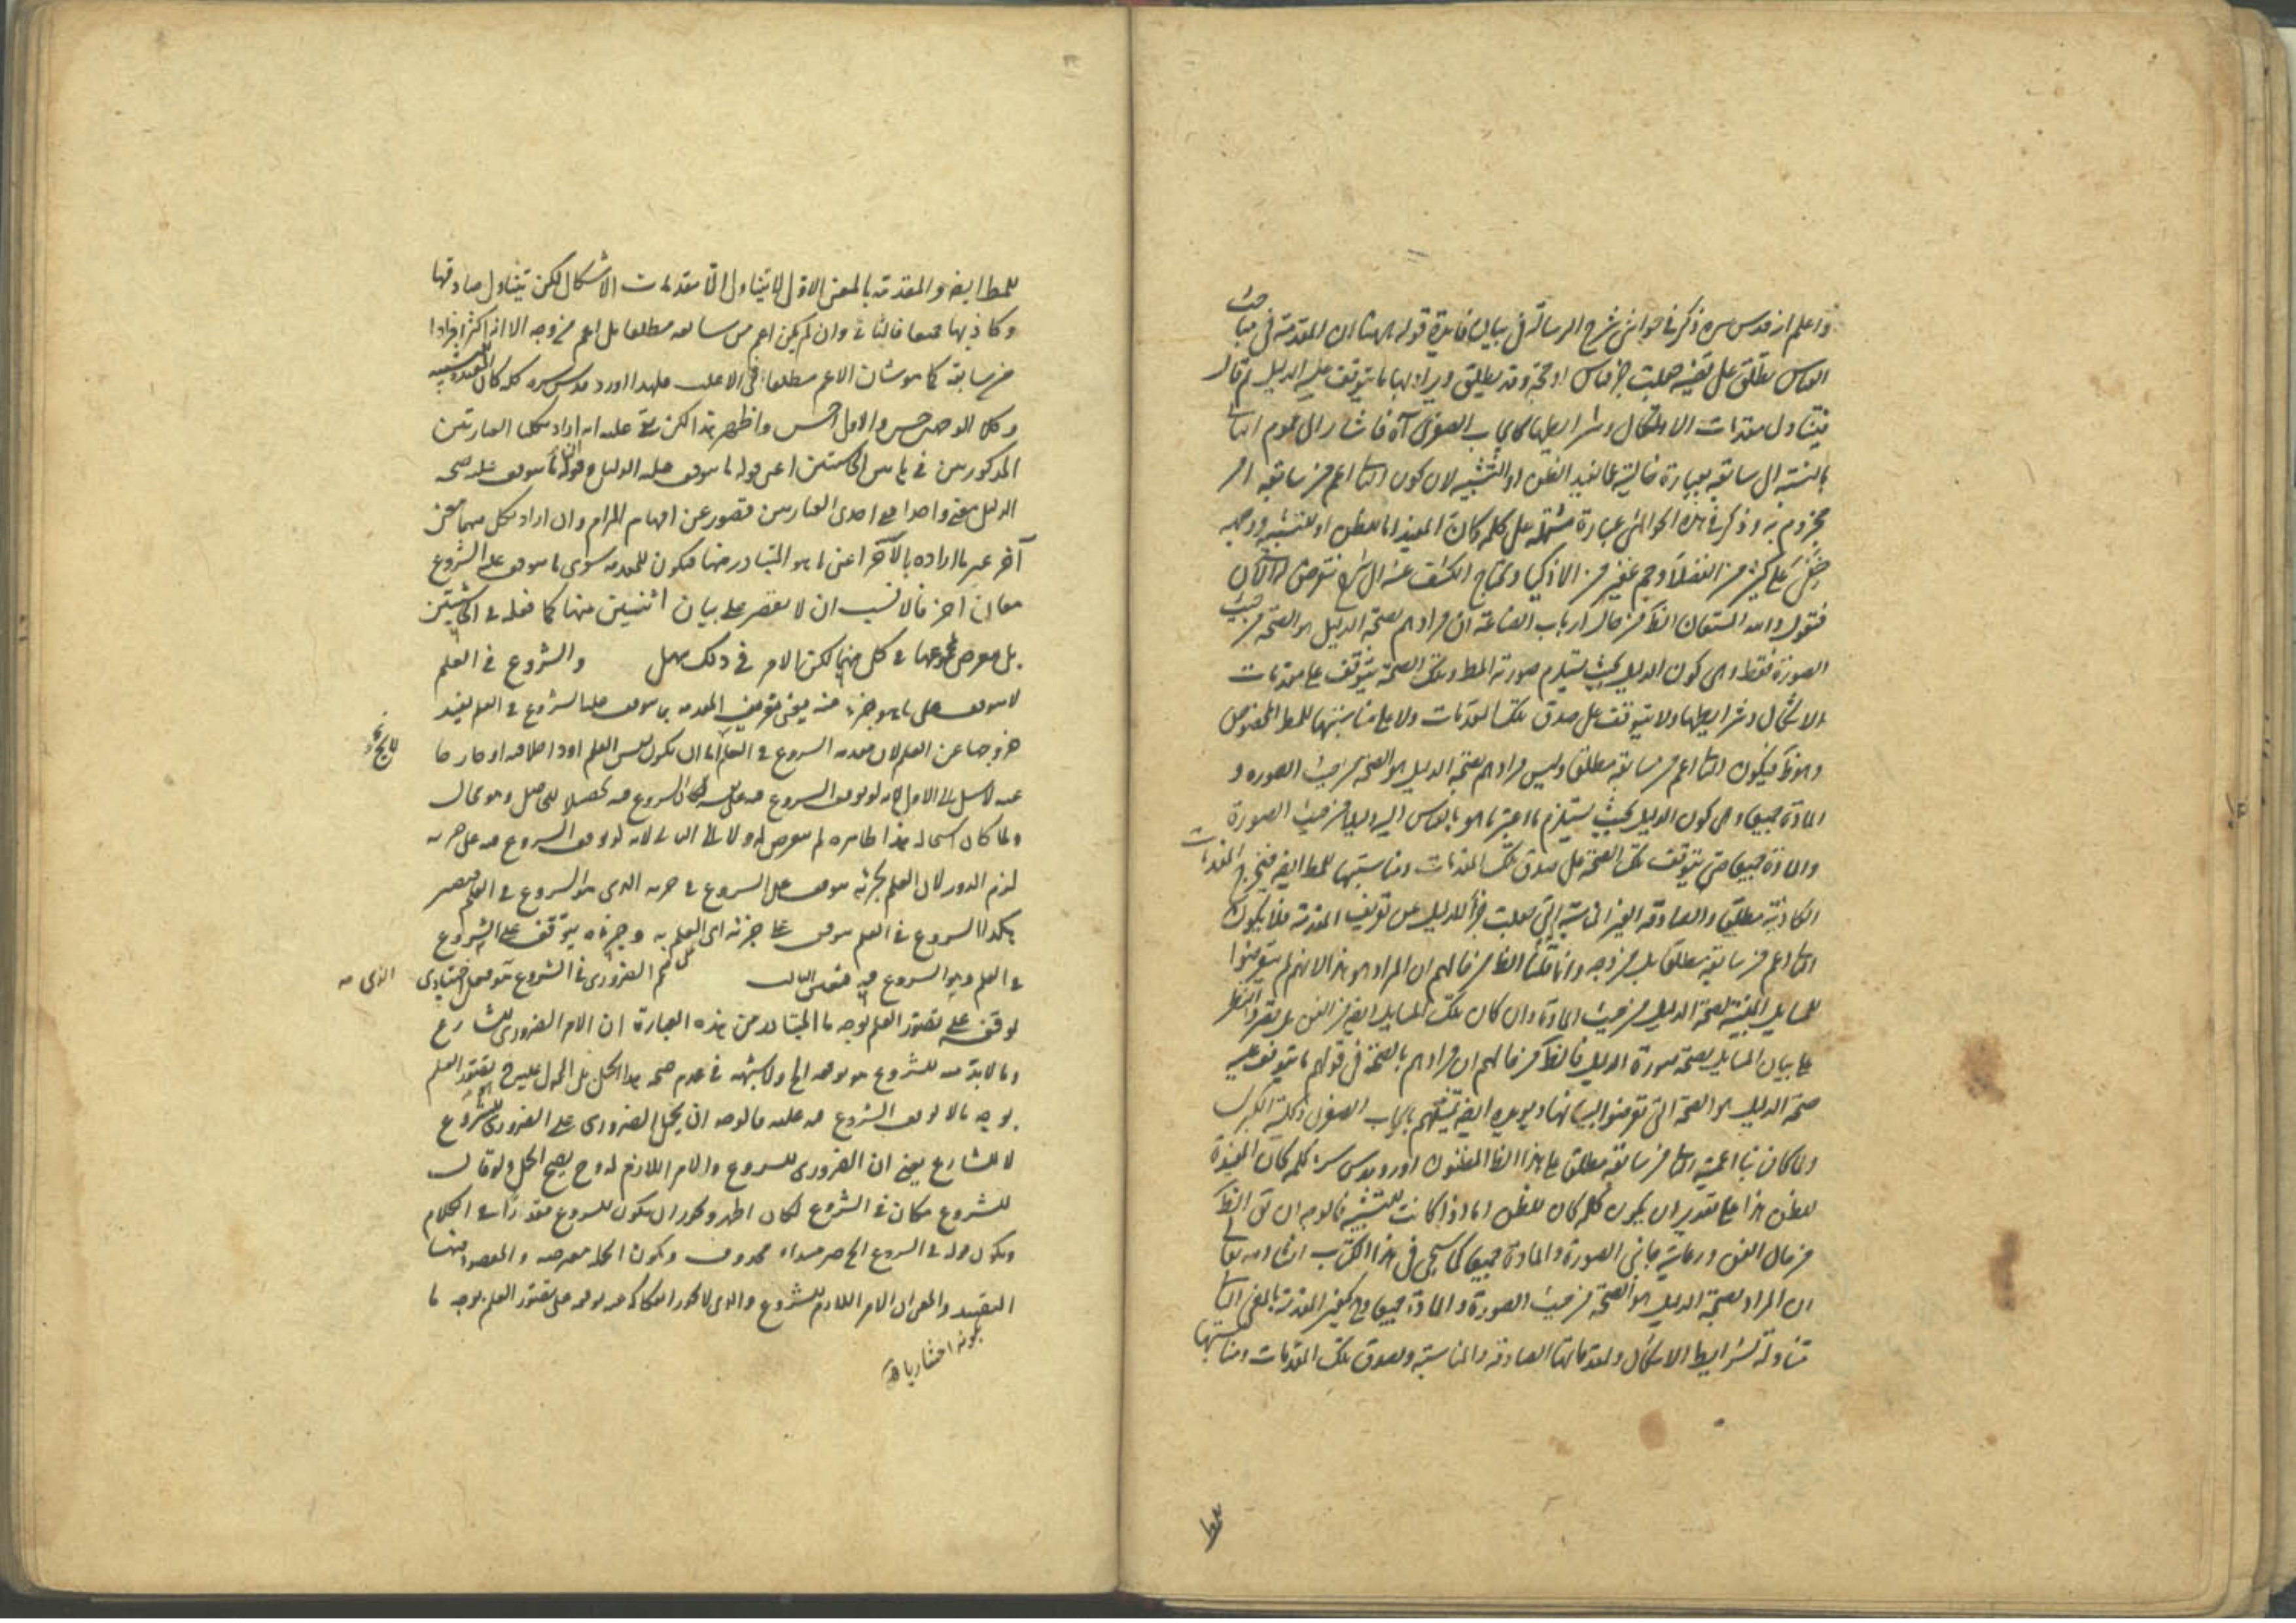 واعلم انه قدس سره ذكر في حواشي شرح الرسالة في بيان فايدة قوله ههنا ان المقدمة في مباحث
القياس تطلق على قضية جعلت جزء قياس او حجة وقد يطلق ويراد بها ما يتوقف عليه الدليل ثم قال
فيتناول مقدمات الاشكال وشرايطها كايجاب الصغرى آه فاشار الى عموم الثاني
بالنسبة الى سابقه بعبارة خالية عما يفيد الظن او التشبيه لان كون الثاني اعم من سابقه امر
مجزوم به وذكر في هذه الحواشي عبارة مشتملة على كلمة كان المفيد اما للظن او للتشبيه ووجهه
خفي على كثير من الفضلاء وجم غفير من الاذكياء
فنقول والله المستعان الظ من حال ارباب الصناعة ان مرادهم بصحة الدليل هو الصحة من حيث
الصورة فقط وهي كون الدليل بحيث يستلزم صورته المط وتلك الصحة يتوقف على مقدمات
الاشكال وشرايطها ولا يتوقف على صدق تلك المقدمات ولا على مناسبتها للمط المخصوص
وهو ظ فيكون الثاني اعم من سابقه مطلقا وليس مرادهم بصحة الدليل هو الصحة من حيث الصورة و
المادة جميعا وهي كون الدليل بحيث يستلزم ما اعتبر ما هو بالقياس اليه دليلا من حيث الصورة
والمادة جميعا حتى يتوقف تلك الصحة على صدق تلك المقدمات ومناسبتها للمط ايضا فيخرج المقدمات
الكاذبة مطلقا والصادقة الغير المناسبة التي جعلت جزأ للدليل عن تعريف المقدمة فلا يكون
الثاني اعم من سابقه مطلقا بل من وجه وانما قلنا الظ من حالهم ان المراد هو هذا لانهم لم يتعرضوا
للمسايل المبينة لصحة الدليل من حيث المادة وان كان تلك المسايل ايضا من الفن بل قصروا النظر
على بيان المسايل لصحة صورة الدليل فالظ من حالهم ان مرادهم بالصحة في قولهم ما يتوقف عليه
صحة الدليل هو الصحة التي تعرضوا لبيانها ويؤيده ايضا تمثيلهم بايجاب الصغرى وكلية الكبرى
ولما كان بنا اعمية الثاني من سابقه مطلقا على هذا الظ المظنون اورد قدس سره كلمة كان المفيدة
للظن هذا على تقدير ان يكون كلمة كان للظن اما اذا كانت للتشبيه فالوجه ان يق الظ
من حال الفن ورعاية جانبي الصورة والمادة جميعا كما سيجي في هذا الكتاب انشاء الله تعالى
ان المراد بصحة الدليل هو الصحة من حيث الصورة والمادة جميعا وح يكون المقدمة بالمعنى الثاني
متناولة لشرايط الاشكال ولمقدماتها الصادقة والمناسبة ولصدق تلك المقدمات ومناسبتها
للمط ايضا والمقدمة بالمعنى الاول لا يتناول الا مقدمات الاشكال لكن يتناول صادقها
وكاذبها جميعا فالثاني وان لم يكن اعم من سابقه مطلقا بل اعم من وجه الا انه اكثر افرادا
من سابقه كما هو شان الاعم مطلقا في الاغلب فلهذا اورد قدس سره كلمة كان المفيدة للتشبيه
وكلا الوجهين حسن والاول احسن واظهر هذا لكن بقي عليه انه اراد بكلتا العبارتين
المذكورتين في هاتين الحاشيتين اعني قوله ما يتوقف عليه الدليل وقوله ما يتوقف عليه صحة
الدليل معنى واحدا ففي احدى العبارتين قصور عن افهام المرام وان اراد بكل منهما معنى
آخر غير ما اراده بالآخر اعني ما هو المتبادر منها فيكون للمقدمة سوى ما يتوقف عليه الشروع
معان اخر فالانسب ان لا يقتصر على بيان اثنين منها كما فعله في الحاشيتين
بل يتعرض لمجموعها في كل منهما لكن الامر في ذلك سهل والشروع في العلم
لا يتوقف على ما هو جزء منه يعني تعريف المقدمة بما يتوقف عليه الشروع في العلم يفيد
خروجها عن العلم لان مقدمة الشروع في العلم اما ان يكون نفس العلم او داخلا فيه او خارجا
عنه لا سبيل الى الاول لانه لو توقف الشروع فيه على نفسه لكان الشروع فيه تحصيلا للحاصل وهو محال
ولما كان استحالة هذا ظاهره لم يتعرض له ولا الى الثاني لانه لو توقف الشروع فيه على جزئه
لزم الدور لان العلم بجزئه يتوقف على الشروع في جزئه الذي هو الشروع في العلم فيصير
هكذا الشروع في العلم يتوقف على جزئه اي العلم به وجزءه يتوقف على الشروع
في العلم وهو الشروع فيه فتعين الثالث قال نعم الضروري في الشروع
توقفه على تصور العلم بوجه ما المتبادر من هذه العبارة ان الامر الضروري للشارع
وما لابد منه للشروع هو توقفه الخ ولا شبهة في عدم صحة هذا الحمل بل المحمول عليه ح تصور العلم
بوجه ما لا توقف الشروع فيه عليه فالوجه ان يحمل الضروري على الضروري للشروع
لا للشارع يعني ان الضروري للشروع والامر اللازم له وح يصح الحمل ولو قال
للشروع مكان في الشروع لكان اظهر ويجوز ان يكون للشروع مقدرا في الكلام
ويكون قوله في الشروع الخ خبر مبتداء محذوف ويكون الجملة معترضة والمقصود منها
التقييد والمعنى ان الامر اللازم للشروع والذي لا يجوز انفكاكه عنه توقفه على تصور العلم بوجه ما
بكونه اختياريا